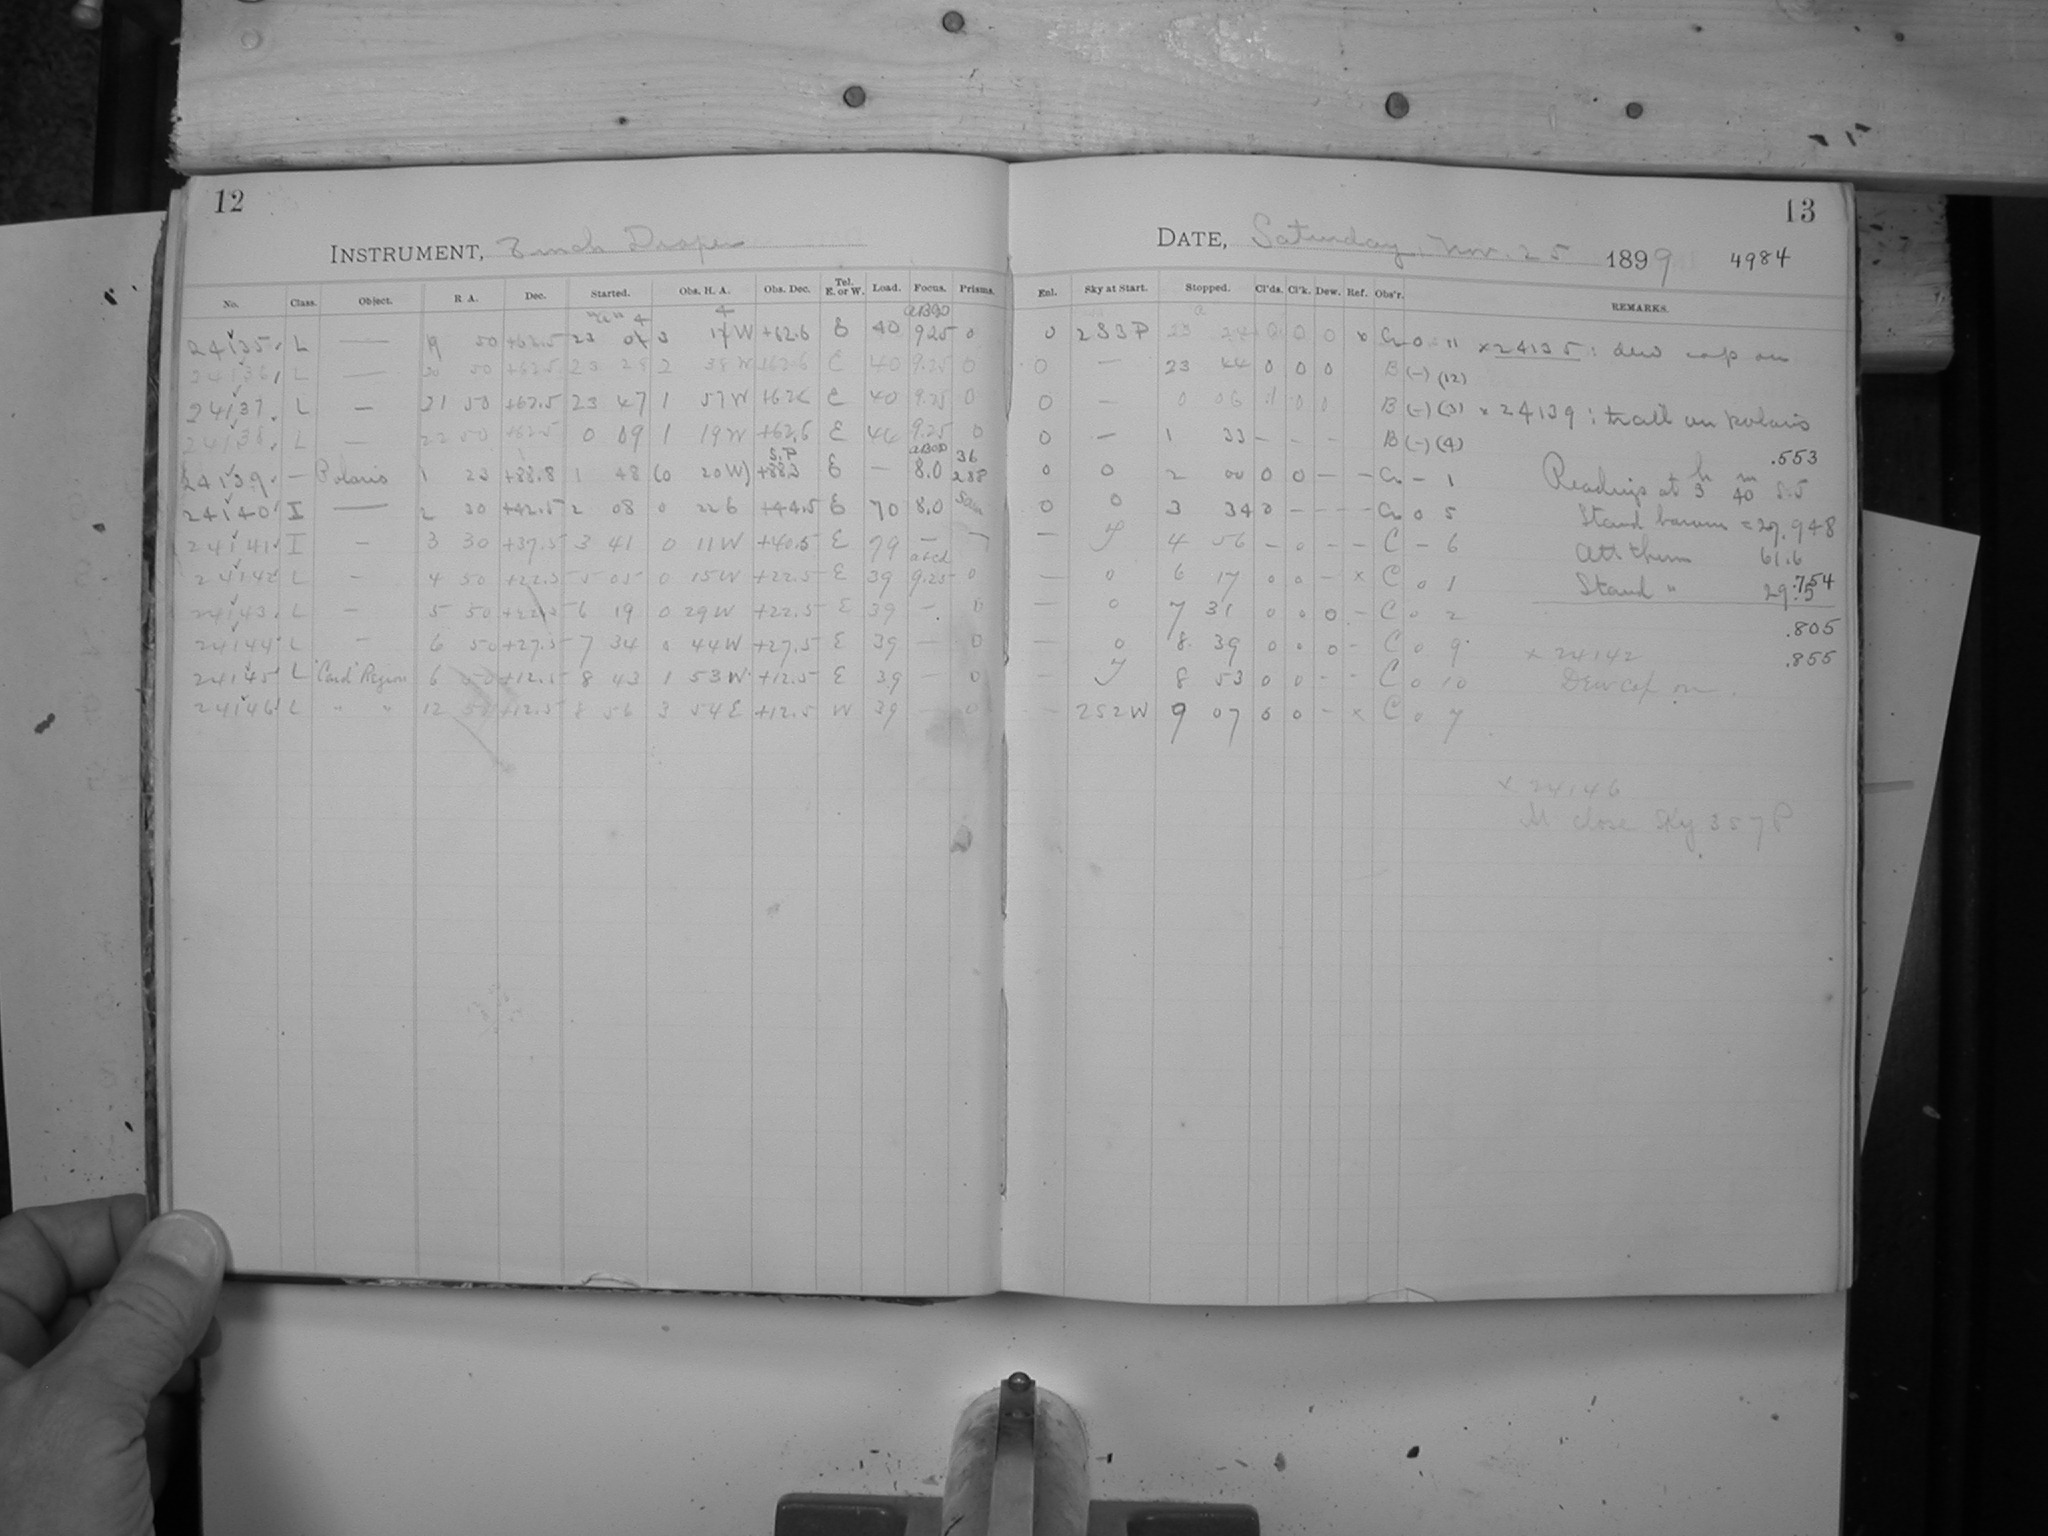 12
INSTRUMENT, 8 inch Draper
No. Class. Object. R. A. Dec. Started. Obs. H. A. Obs. Dec. Tel. E. or W. Load. Focus. Prisms.
24135 L — 19 50 +62.5 23 3 17 W +62.6 E 40 9.25 0
24136 L — 20 50 +62.5 23 28 2 38 W +62.6 E 40 9.25 0
24137 L — 21 50 +62.5 23 47 1 57 W E 40 9.25 0
24138 L — 22 50 +62.5 0 09 1 19 W +62.6 E 9.25 0
24139 — Polaris 1 23 +88.8 1 48 (0 20 W) S.P. E — 8.0
24140 I — 2 30 +42.5 2 08 0 +44.5 E 70 8.0
24141 I — 3 30 +37.5 3 41 0 11 W +40.5 E 79 —
24142 L — 4 50 +22.5 5 05 0 15 W +22.5 E 39 9.25 0
24143 L — 5 50 +22.5 6 19 0 29 W +22.5 E 39 — 0
24144 L — 6 50 +27.5 7 34 0 44 W +27.5 E 39 — 0
24145 L "Card" Region 6 50 +12.5 8 43 1 53 W +12.5 E 39 — 0
24146 L " " 12 50 +12.5 8 56 3 54 E +12.5 W 39 — 0
13
DATE, Saturday, Nov. 25 1899 4984
Enl. Sky at Start. Stopped. Cl'ds. Cl'k. Dew. Ref. Obs'r. REMARKS.
0 23 24 0 0 0 x 0 11 x 24135: dew cap on
0 — 23 44 0 0 0 B (-) (12)
0 — 0 06 1 0 0 B (-) (3) x 24139: trail on Polaris
0 — 1 33 - - - B (-) (4)
0 0 2 00 0 0 - - - 1
0 0 3 34 0 - - - 0 5
— 4 56 - 0 - - C - 6
— 0 6 17 0 0 - x C 0 1
— 0 7 31 0 0 0 - C 0 2
— 0 8 39 0 0 0 - C 0 9
— 8 53 0 0 - - C 0 10
— 252 W 9 07 0 0 - x C 0 7
.553
Readings at 3h 40m
Stand barom = 29.948
Att. therm 61.6
Stand " 29.5
.754
.805
.855
x 24142
Dew cap on.
x 24146
M close Sky 357 P